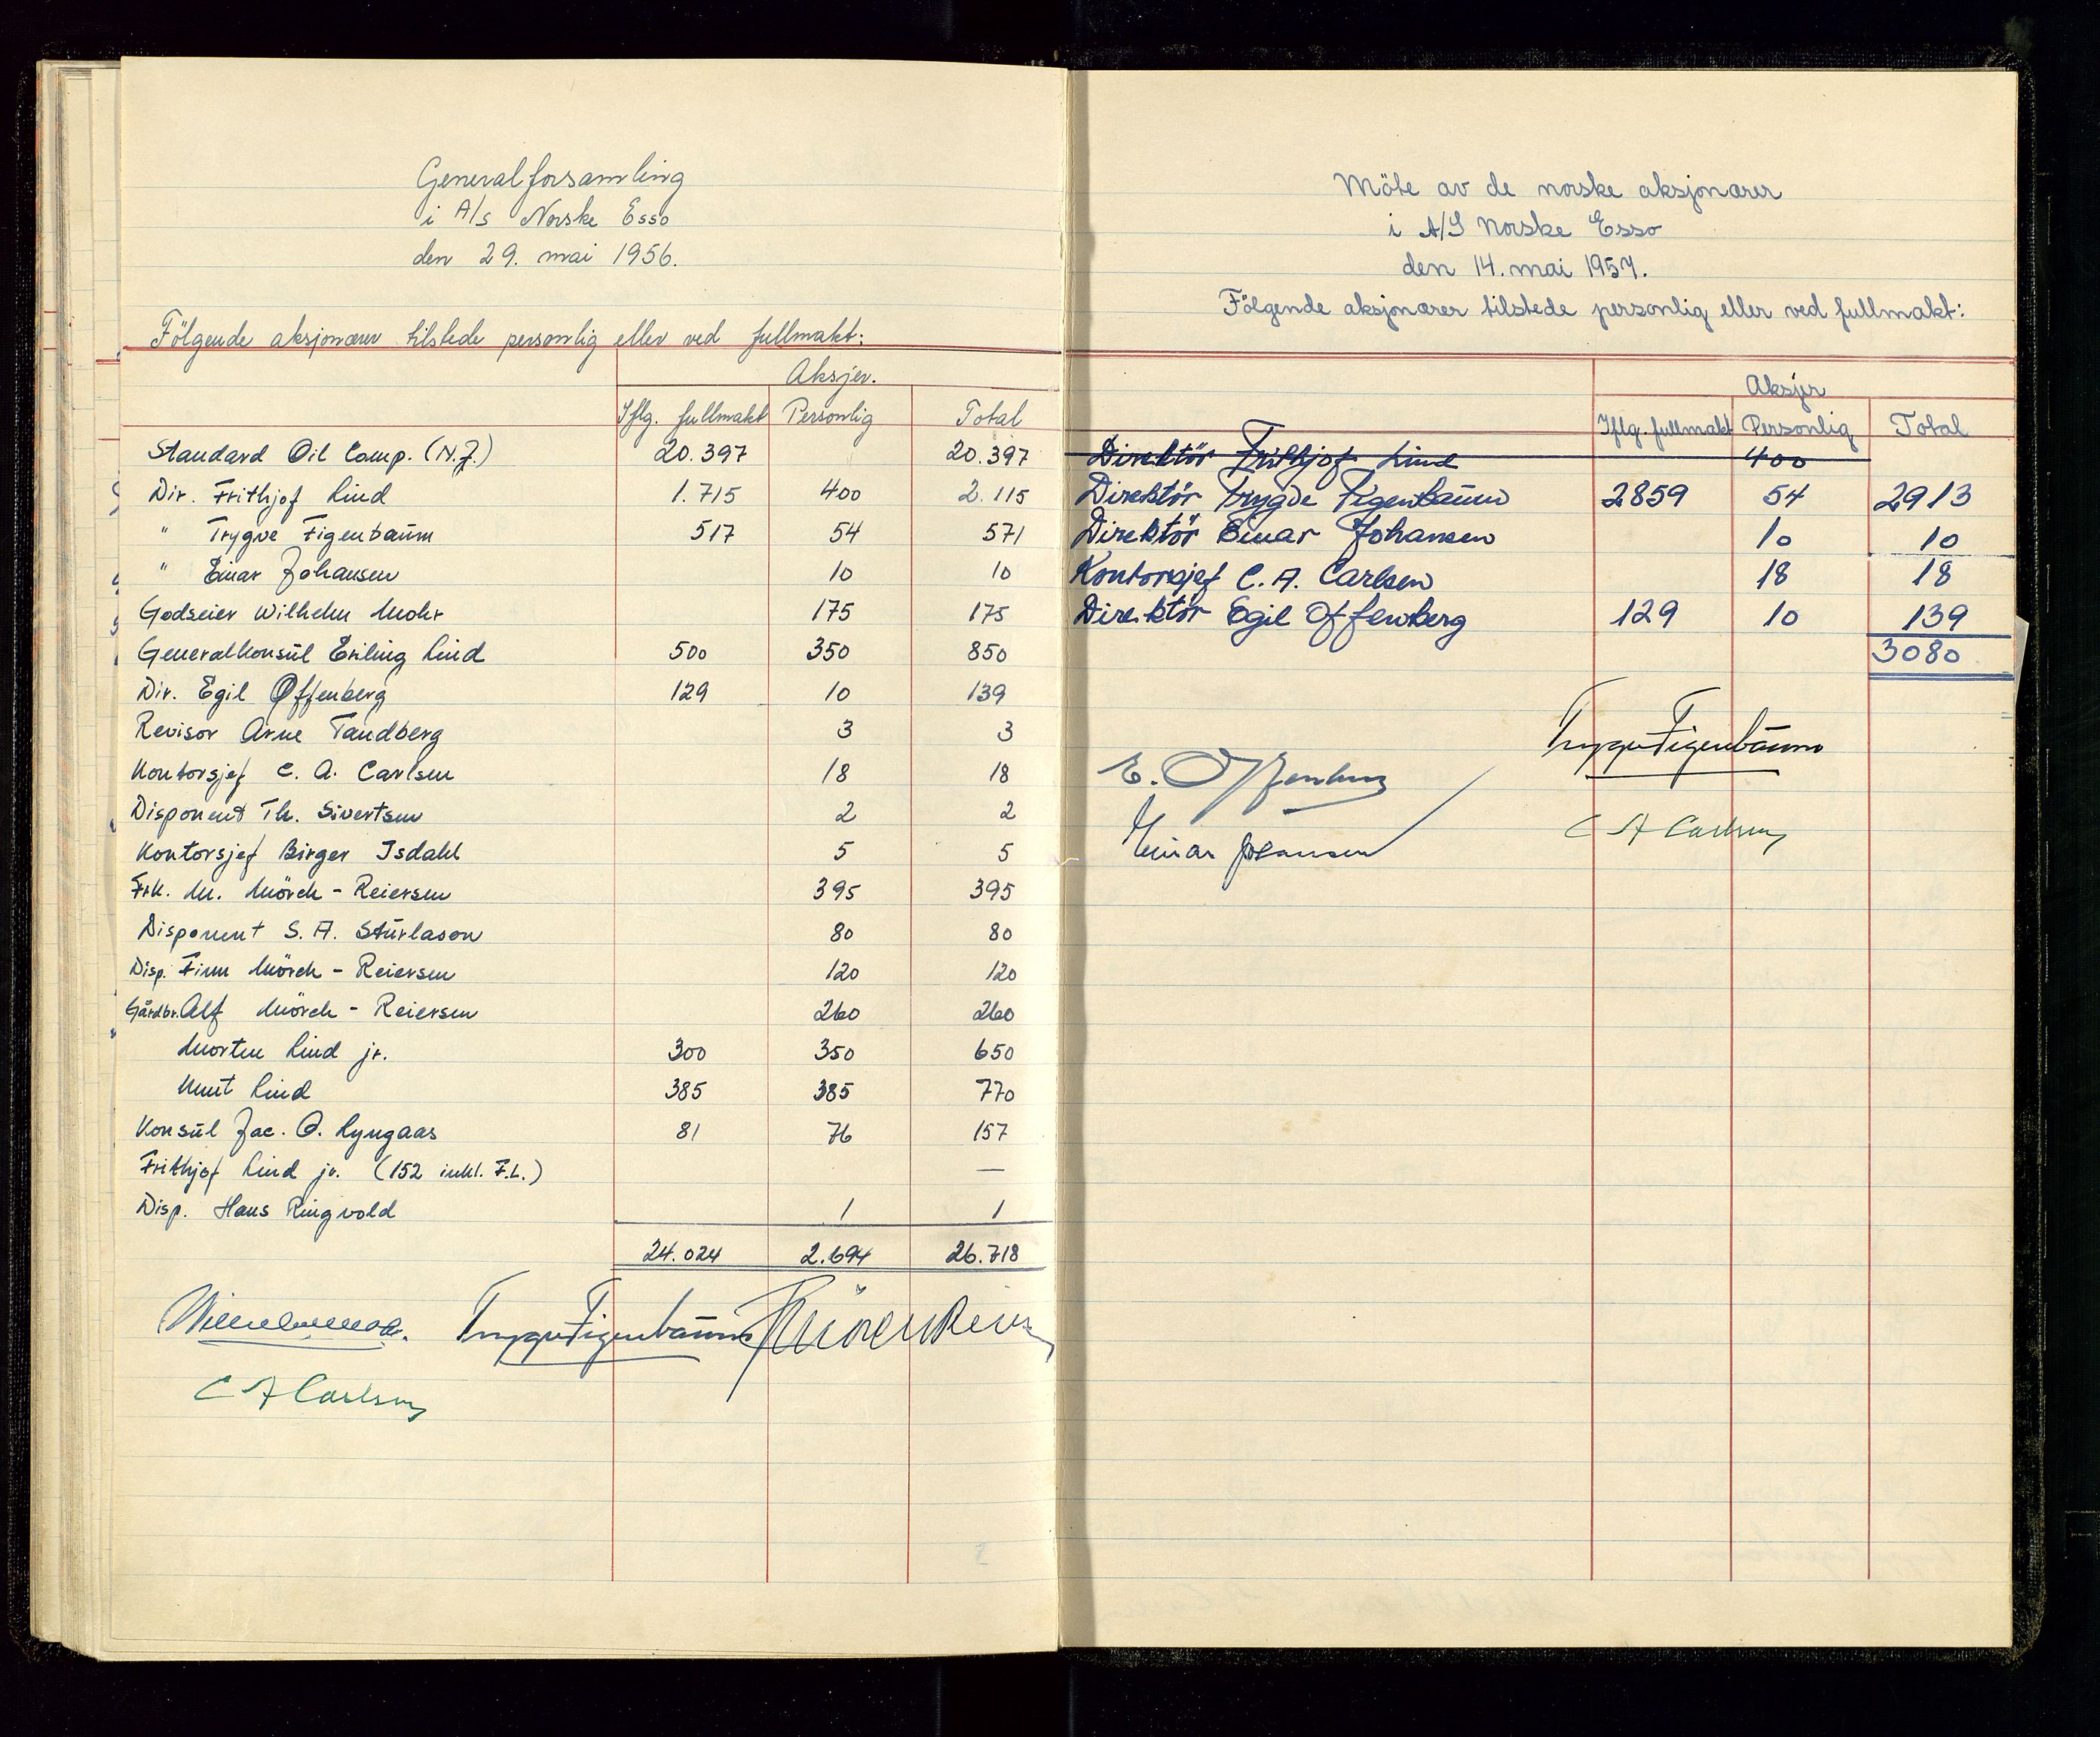 Generalforsamling
i A/s Norske Esso
den 29. mai 1956.
Följgende aksjonærer tilstede personlig eller ved fullmakt:
Aksjer.
Iflg. fullmakt Personlig Total
Standard Oil Comp. (N.J.) 20.397 20.397
Dir. Frithjof Lind 1.715 400 2.115
" Trygve Figenbaum 517 54 571
" Einar Johansen 10 10
Godseier Wilhelm Mohr 175 175
Generalkonsul Erling Lind 500 350 850
Dir. Egil Offenberg 129 10 139
Revisor Arne Tandberg 3 3
Kontorsjef C. A. Carlsen 18 18
Disponent Th. Sivertsen 2 2
Kontorsjef Birger Isdahl 5 5
Frk. M. Mörch - Reiersen 395 395
Disponent S. A. Sturlason 80 80
Disp. Finn Mörch - Reiersen 120 120
Gårdbr. Alf Mörch - Reiersen 260 260
Morten Lind jr. 300 350 650
Knut Lind 385 385 770
Konsul Jac. O. Lyngaas 81 76 157
Frithjof Lind jr. (152 inkl. F.L.) —
Disp. Hans Ringvold 1 1
24.024 2.694 26.718
Trygve Figenbaum
C A Carlsen
Möte av de norske aksjonærer
i A/S Norske Esso
den 14. mai 1957.
Fölgende aksjonærer tilstede personlig eller ved fullmakt:
Aksjer
Iflg. fullmakt Personlig Total
Direktör Frithjof Lind 400
Direktör Trygve Figenbaum 2859 54 2913
Direktör Einar Johansen 10 10
Kontorsjef C. A. Carlsen 18 18
Direktör Egil Offenberg 129 10 139
3080
Trygve Figenbaum
E. Offenberg
C A Carlsen
Einar Johansen